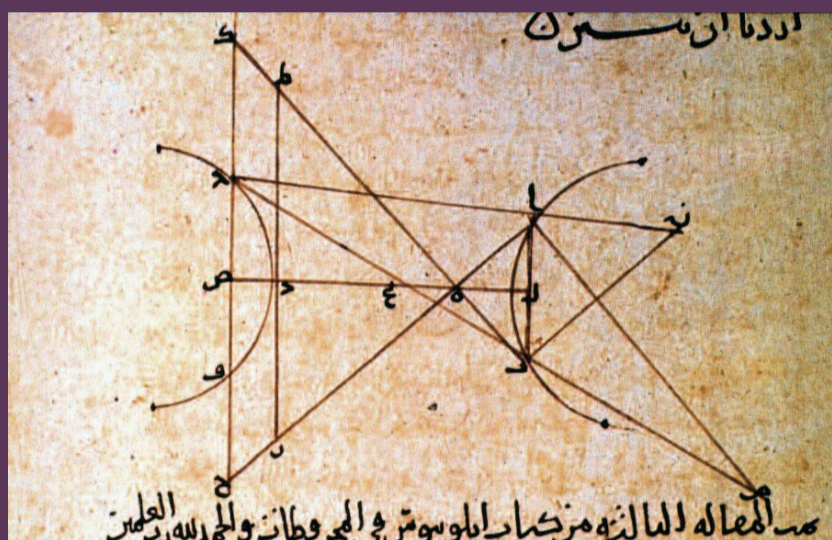 اردنا ان نبين
ك
ط
ا
ن
ص
د
ع
ه
ل
ح
م
تمت المقاله الثالثه من كتاب ابلونيوس في المخروطات والحمد لله رب العلمين